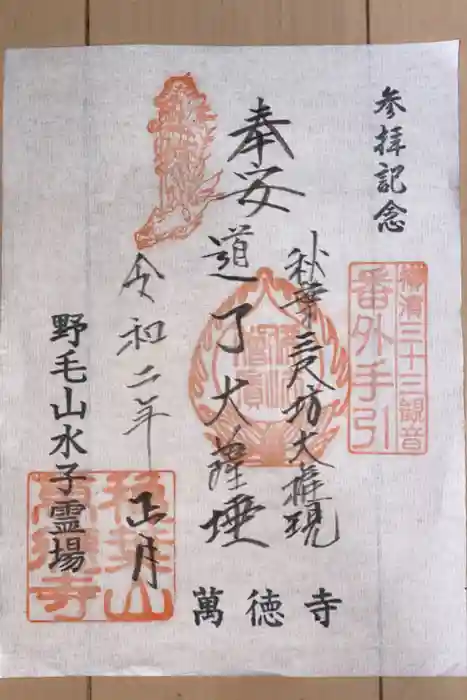 参拝記念
横濱三十三観音
番外手引
奉安
秋葉三尺坊大権現
道了大薩埵
令和二年
正月
野毛山水子霊場
秋葉山
萬徳寺
萬徳寺